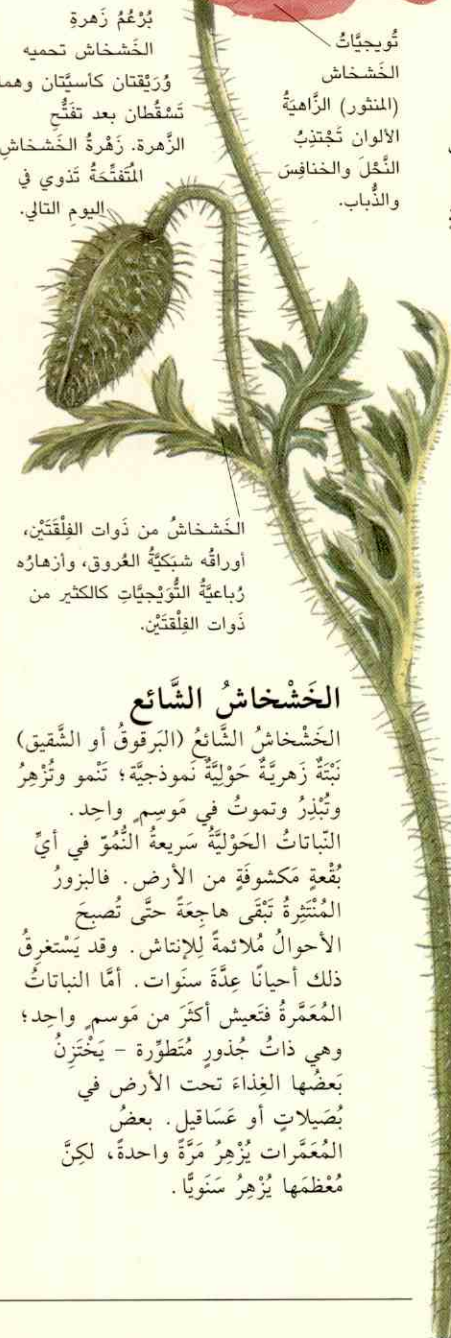 بُرْعُمُ زَهرةِ
الخَشخاش تحميه
وُرَيْقتان كأسيَّتان وهما
تَسْقُطان بعد تفَتُّحِ
الزَّهرة. زَهْرةُ الخَشخاشِ
المُتفتِّحَةُ تَذوي في
اليومِ التالي.
تُويجيَّاتُ
الخَشخاش
(المنثور) الزَّاهيَةُ
الألوان تَجْتذِبُ
النَّحْلَ والخنافِسَ
والذُّباب.
الخَشخاشُ من ذَوات الفِلْقَتَيْن،
أوراقُه شبَكيَّةُ العُروق، وأزهارُه
رُباعيَّةُ التُّوَيْجيَّاتِ كالكثير من
ذَوات الفِلْقتَيْن.
الخَشْخاشُ الشَّائع
الخَشْخاشُ الشَّائعُ (البَرقوقُ أو الشَّقيق)
نَبْتَةٌ زَهريَّةٌ حَوْلِيَّةٌ نَموذجيَّة؛ تَنْمو وتُزْهِرُ
وتُبْذِرُ وتموتُ في مَوسِمٍ واحِد.
النّباتاتُ الحَوْليَّةُ سَريعةُ النُّمُوّ في أيِّ
بُقْعةٍ مَكشوفَةٍ من الأرض. فالبزورُ
المُنْتَثِرةُ تَبْقَى هاجِعَةً حتَّى تُصبِحَ
الأحوالُ مُلائمةً لِلإنتاش. وقد يَسْتغرِقُ
ذلك أحيانًا عِدَّةَ سنَوات. أمَّا النباتاتُ
المُعَمَّرةُ فتَعيش أكثَرَ من مَوسمٍ واحِد؛
وهي ذاتُ جُذورٍ مُتَطوِّرة – يَخْتَزِنُ
بَعضُها الغِذاءَ تحت الأرض في
بُصَيلاتٍ أو عَسَاقيل. بعضُ
المُعَمَّرات يُزْهِرُ مَرَّةً واحدةً، لكِنَّ
مُعْظمَها يُزْهِرُ سَنَويًّا.